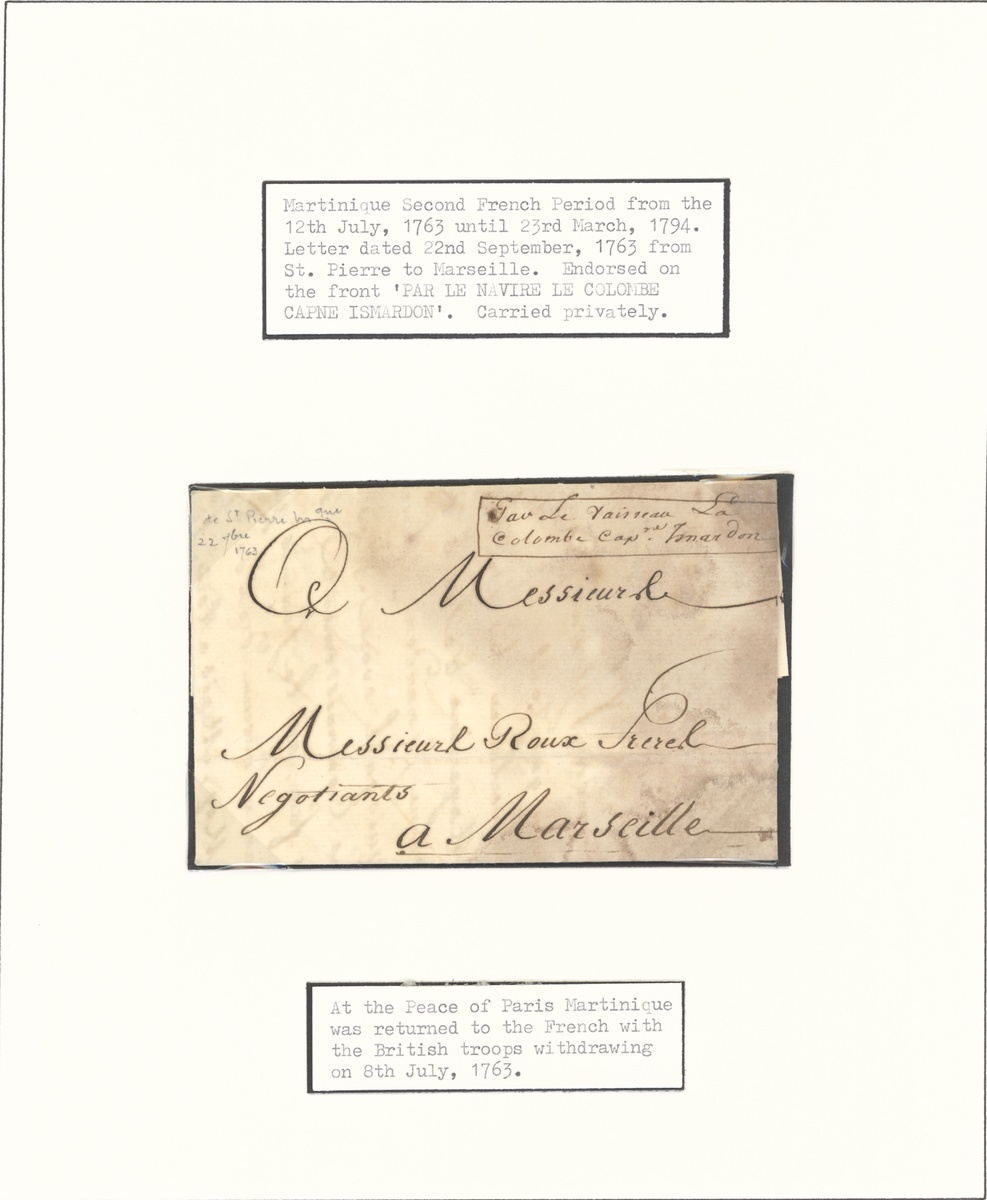 Martinique Second French Period from the
12th July, 1763 until 23rd March, 1794.
Letter dated 22nd September, 1763 from
St. Pierre to Marseille. Endorsed on
the front 'PAR LE NAVIRE LE COLOMBE
CAPNE ISMARDON'. Carried privately.
de St Pierre
22 7bre
1763
Par Le Vaisseau La
Colombe Capne. Ismardon
A Messieurs
Messieurs Roux Freres
Negotiants
a Marseille
At the Peace of Paris Martinique
was returned to the French with
the British troops withdrawing
on 8th July, 1763.